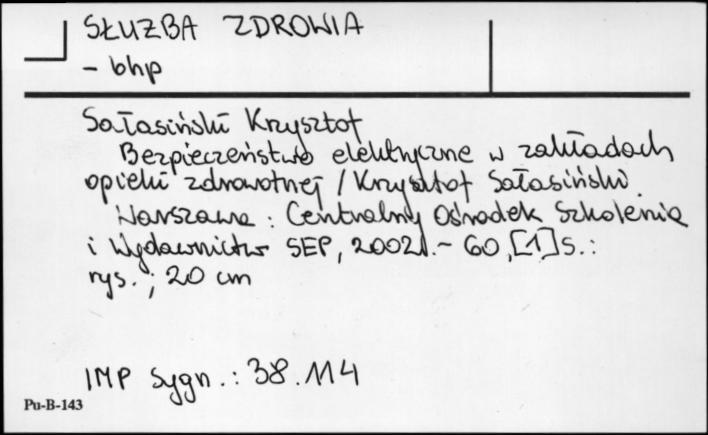 SŁUŻBA ZDROWIA
- bhp
Sałasiński Krzysztof
Bezpieczeństwo elektryczne w zakładach
opieki zdrowotnej / Krzysztof Sałasiński.
Warszawa : Centralny Ośrodek Szkolenia
i Wydawnictw SEP, 2002. - 60, [1] s. :
rys. ; 20 cm
IMP Sygn. : 38.114
Pu-B-143